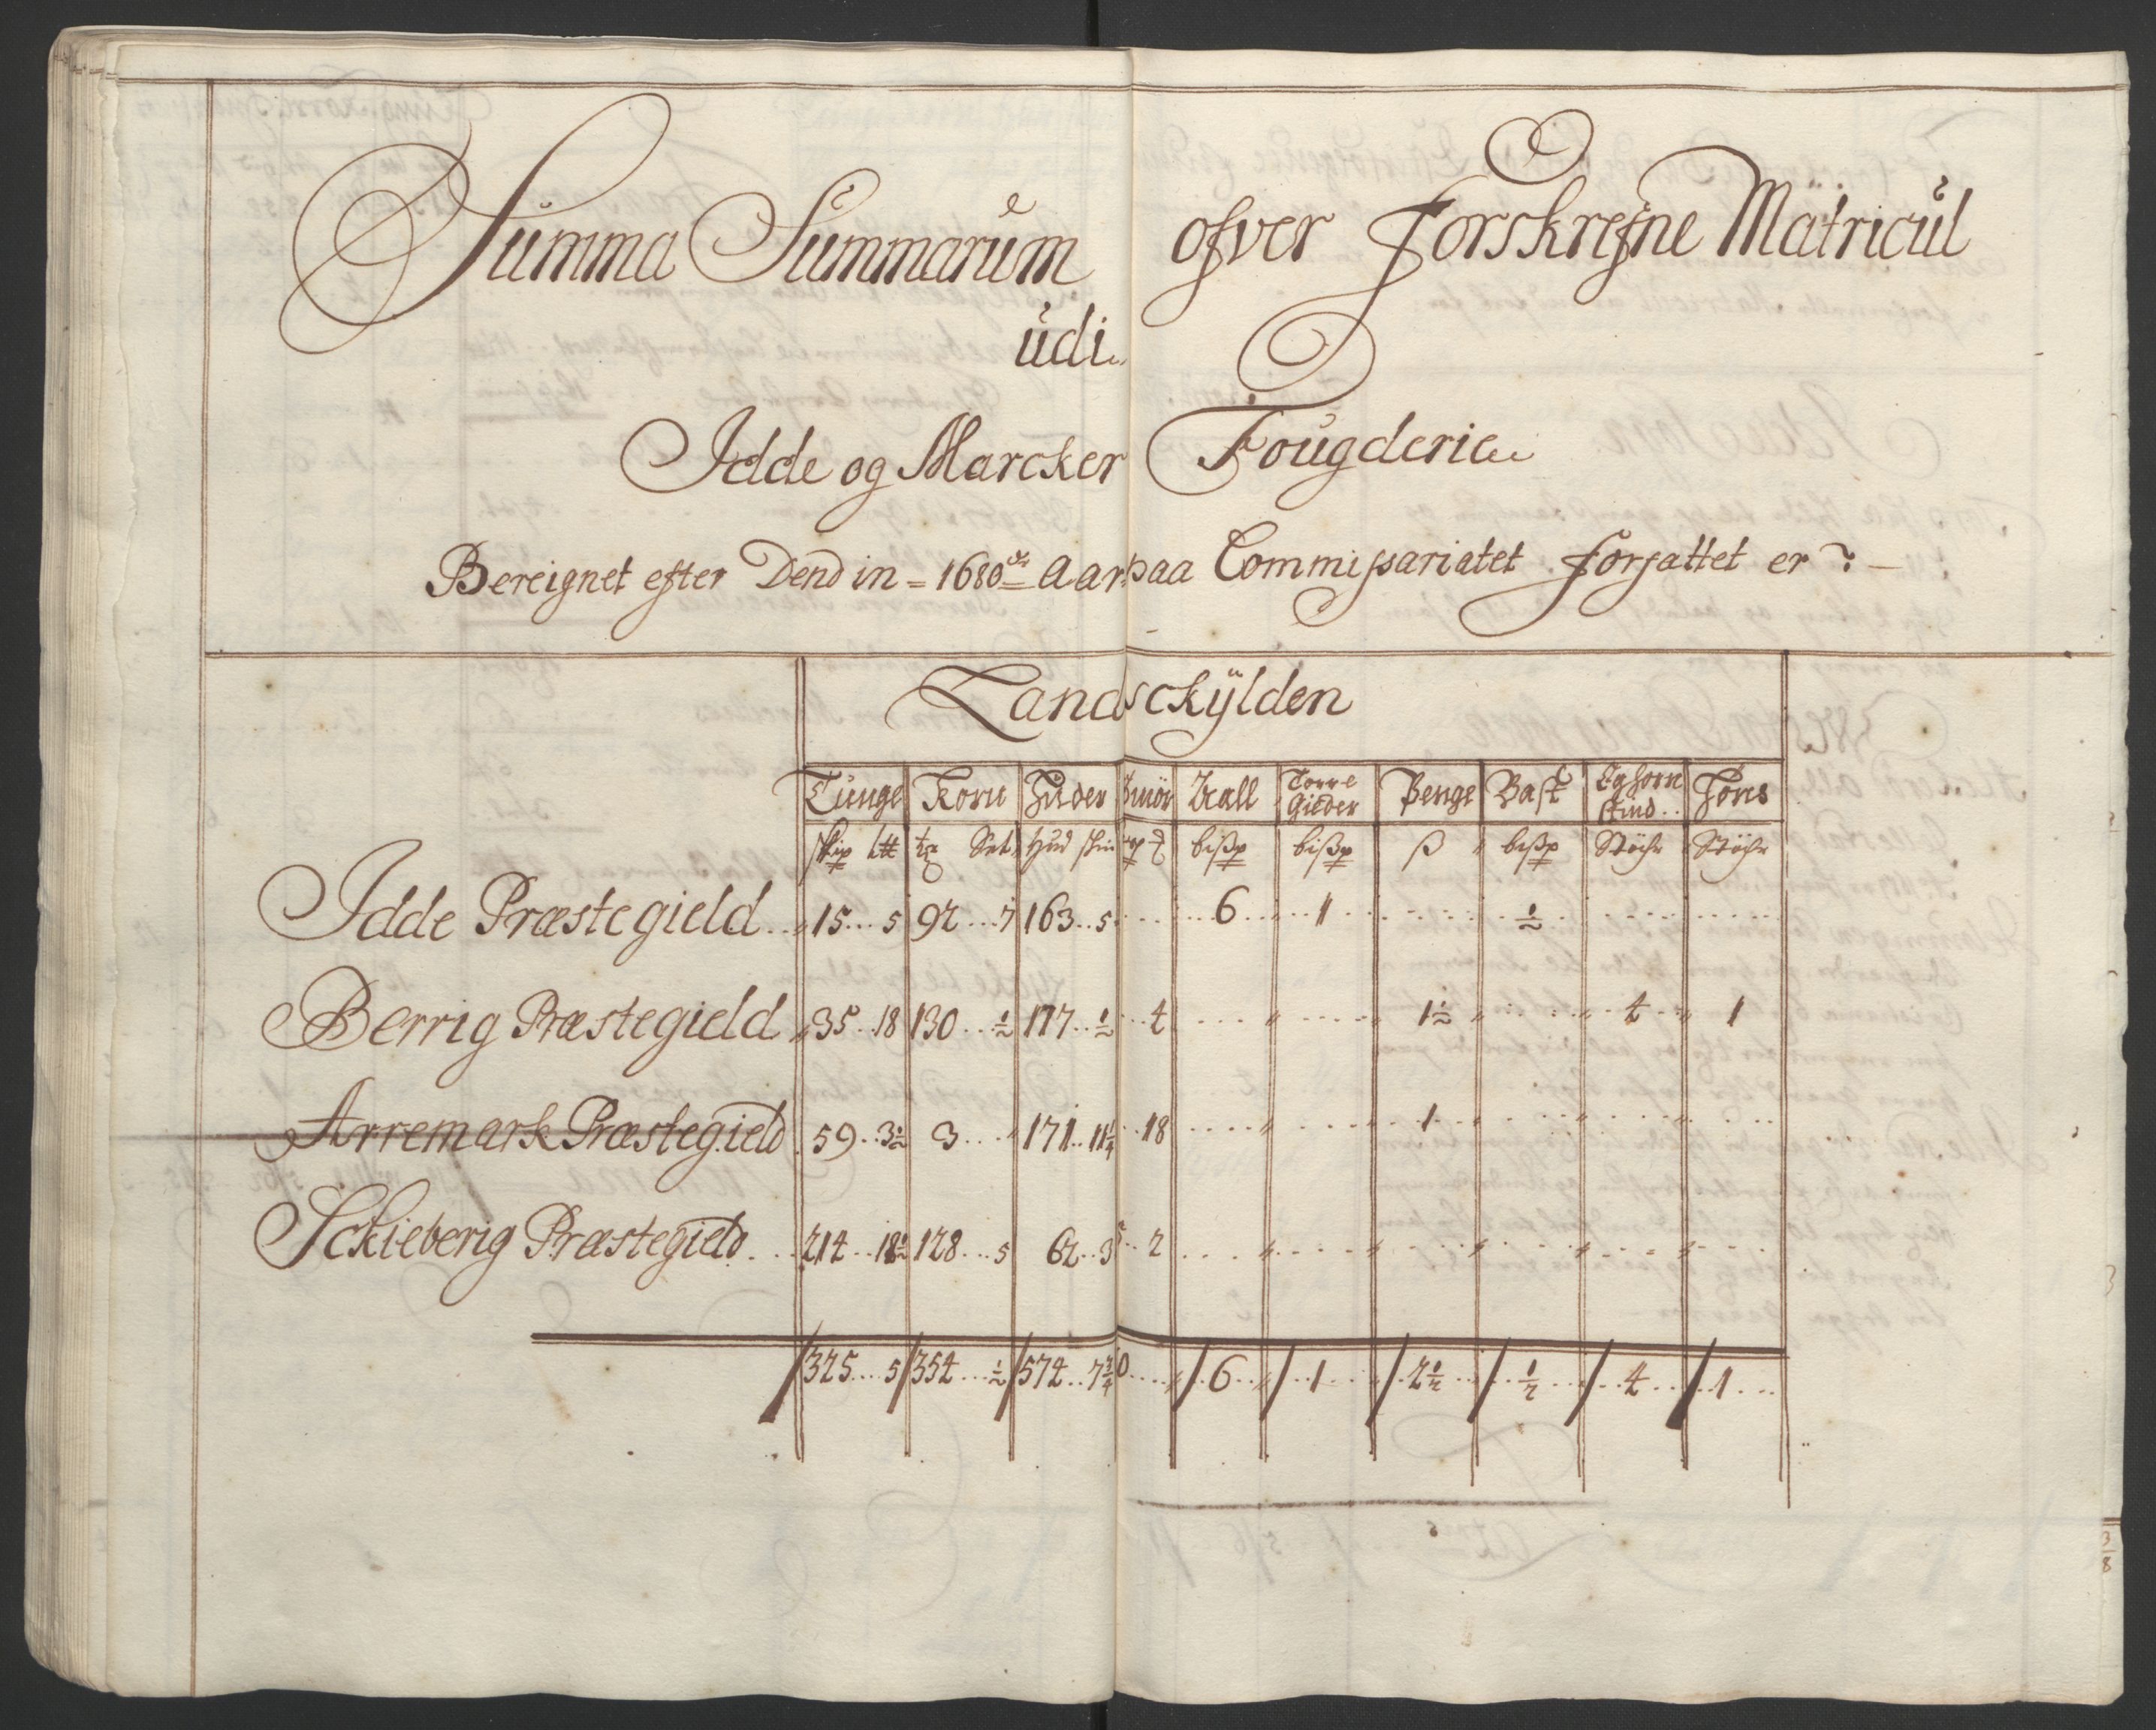 Summa Summarum ofver Forskrefne Matricul
udi
Idde og Marcker Fougderie
Bereignet efter Dend in = 1680 Aar paa Commissariatet forfattet er
Landsckÿlden
Tunge Korn Huder Smör Kall Torre Gieder Penge Bast Eghorn skind Höns
Skip L℔ tr Set Hud skin bißp bißp ß bißp Stöchr Stöchr
Idde Præstegield 15 5 92 7 163 5 6 1 ½
Berrig Præstegield 35 18 130 ½ 177 ½ 4 1½ 4 1
Arremark Præstegield 59 3½ 3 171 11¼ 18 1
Sckieberig Præstegield 214 18½ 128 5 62 3 2
325 5 354 ½ 574 7¾ 6 1 2½ ½ 4 1
3/8